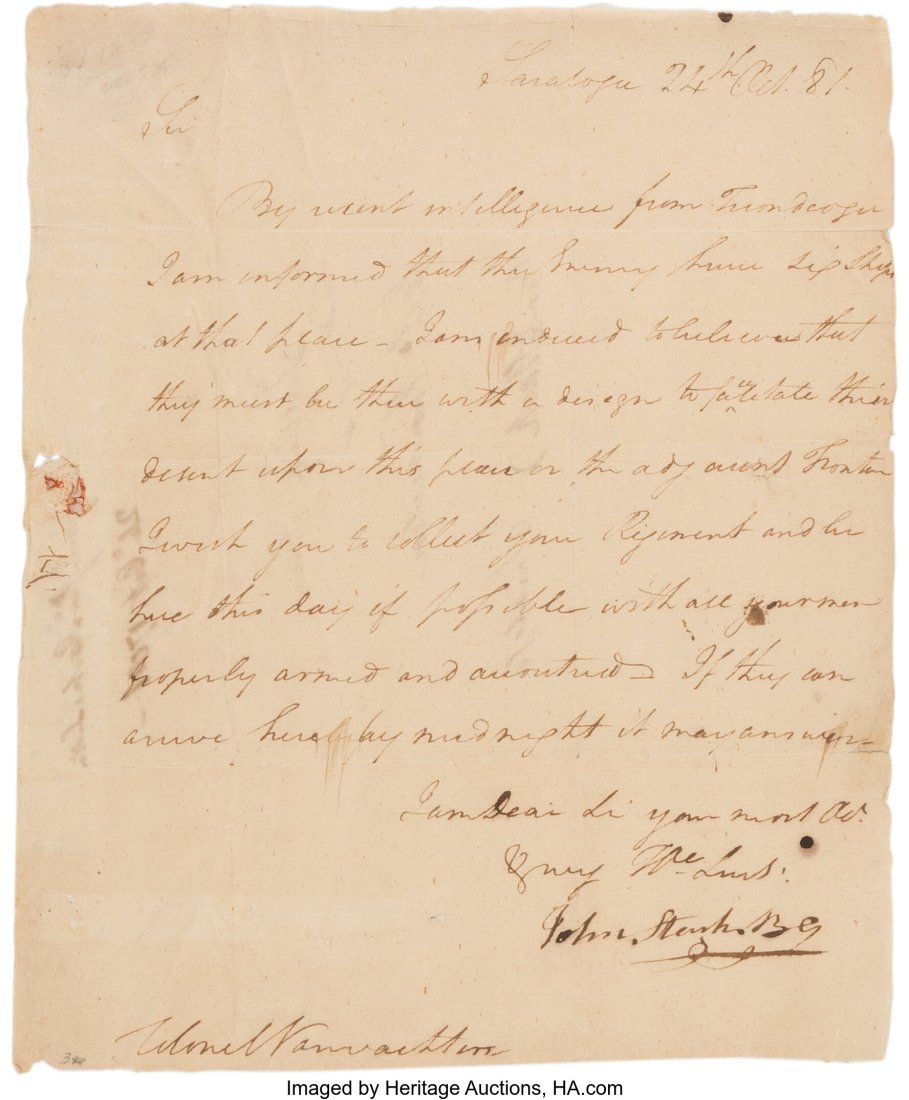 Saratoga 24th Oct. 81.
Sir
By recent intelligence from Ticonderoga
I am informed that the Enemy have six Ships
at that place – I am induced to believe that
they must be there with a design to facilitate thier
decent upon this place or the adjacent Frontier
I wish you to collect your Regiment and be
here this day if possible with all your men
properly armed and acoutred – If they can
arrive here by midnight it may answer –
I am Dear Sir your most Ob.
& very Hbe Servt.
John Stark. B G
Colonel Vanvachten
3
Imaged by Heritage Auctions, HA.com